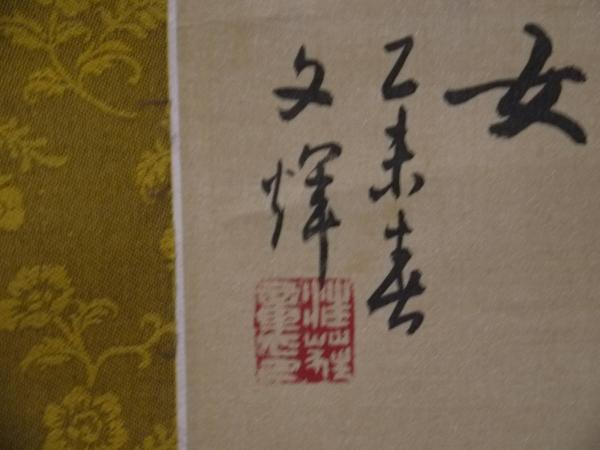 女
乙未春
文輝